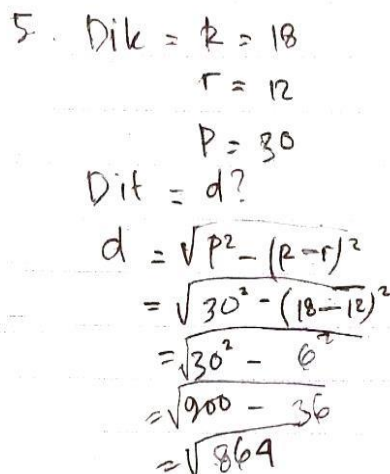 5. Dik = R = 18
r = 12
P = 30
Dit = d?
d = √P² - (R-r)²
= √30² - (18-12)²
= √30² - 6²
= √900 - 36
= √864